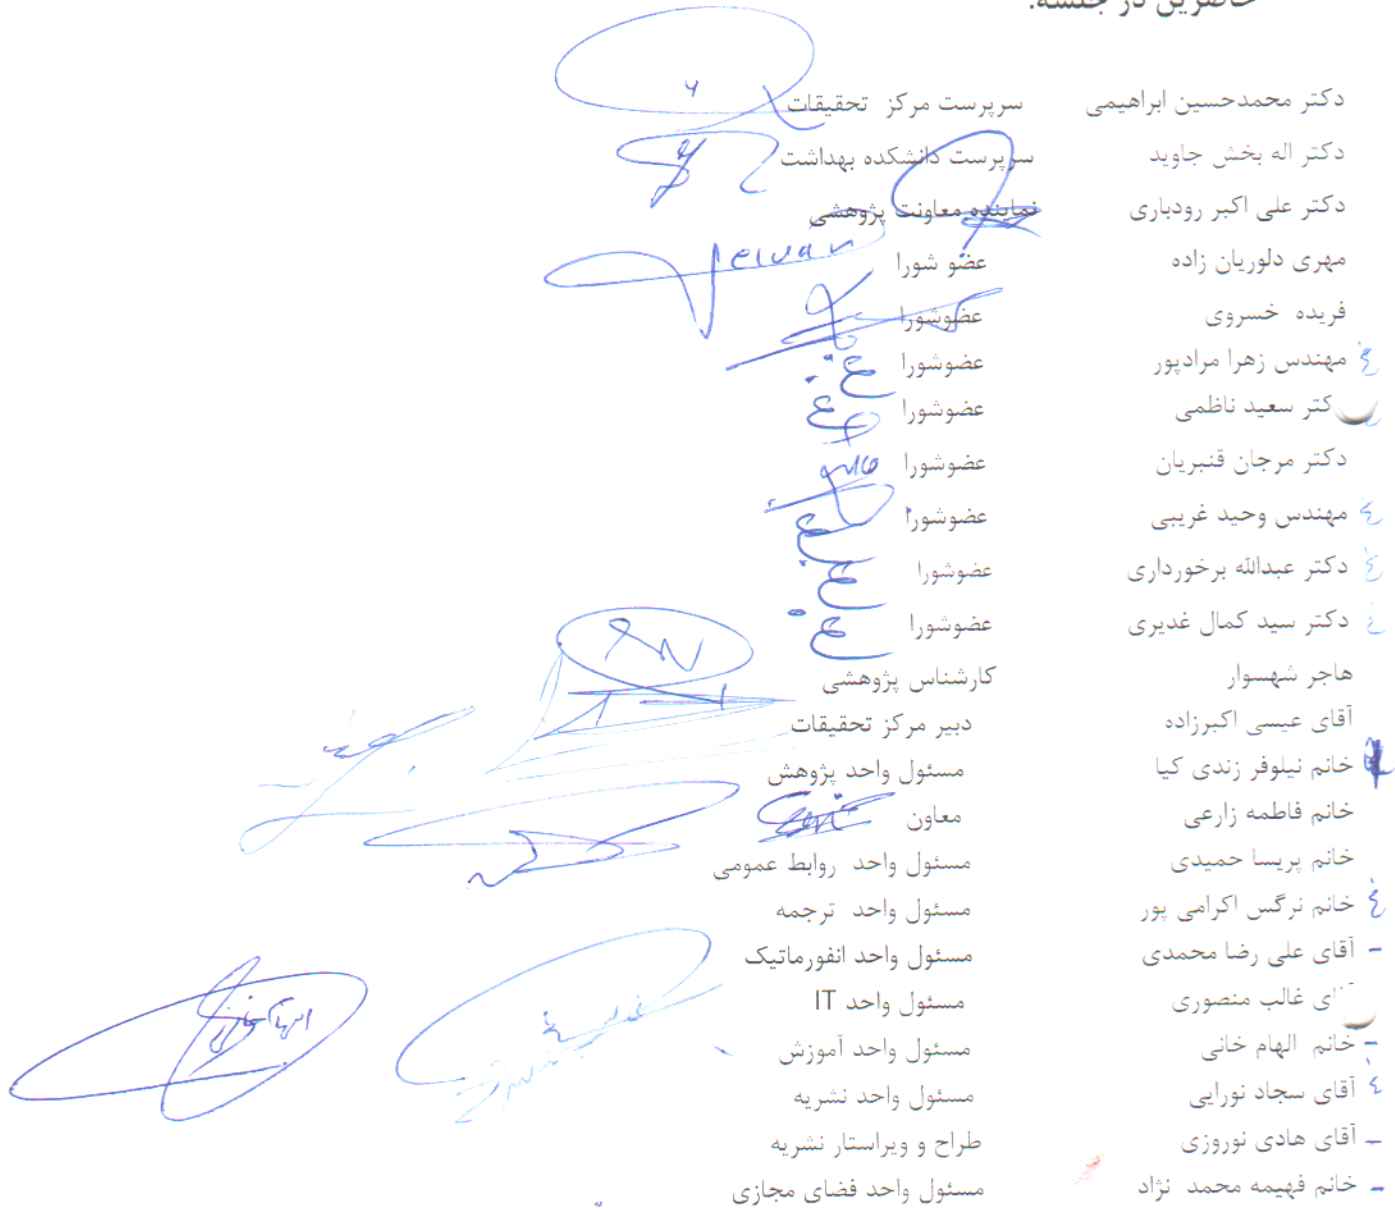 حاضرین در جلسه:
دکتر محمدحسین ابراهیمی سرپرست مرکز تحقیقات
دکتر اله بخش جاوید سرپرست دانشکده بهداشت
دکتر علی اکبر رودباری نماینده معاونت پژوهشی
مهری دلوریان زاده عضو شورا
فریده خسروی عضوشورا
غ مهندس زهرا مرادپور عضوشورا غ
کتر سعید ناظمی عضوشورا غ
دکتر مرجان قنبریان عضوشورا
غ مهندس وحید غریبی عضوشورا غ
غ دکتر عبدالله برخورداری عضوشورا غ
غ دکتر سید کمال غدیری عضوشورا غ
هاجر شهسوار کارشناس پژوهشی
آقای عیسی اکبرزاده دبیر مرکز تحقیقات
خانم نیلوفر زندی کیا مسئول واحد پژوهش
خانم فاطمه زارعی معاون
خانم پریسا حمیدی مسئول واحد روابط عمومی
غ خانم نرگس اکرامی پور مسئول واحد ترجمه
- آقای علی رضا محمدی مسئول واحد انفورماتیک
ای غالب منصوری مسئول واحد IT
- خانم الهام خانی مسئول واحد آموزش
غ آقای سجاد نورایی مسئول واحد نشریه
- آقای هادی نوروزی طراح و ویراستار نشریه
- خانم فهیمه محمد نژاد مسئول واحد فضای مجازی